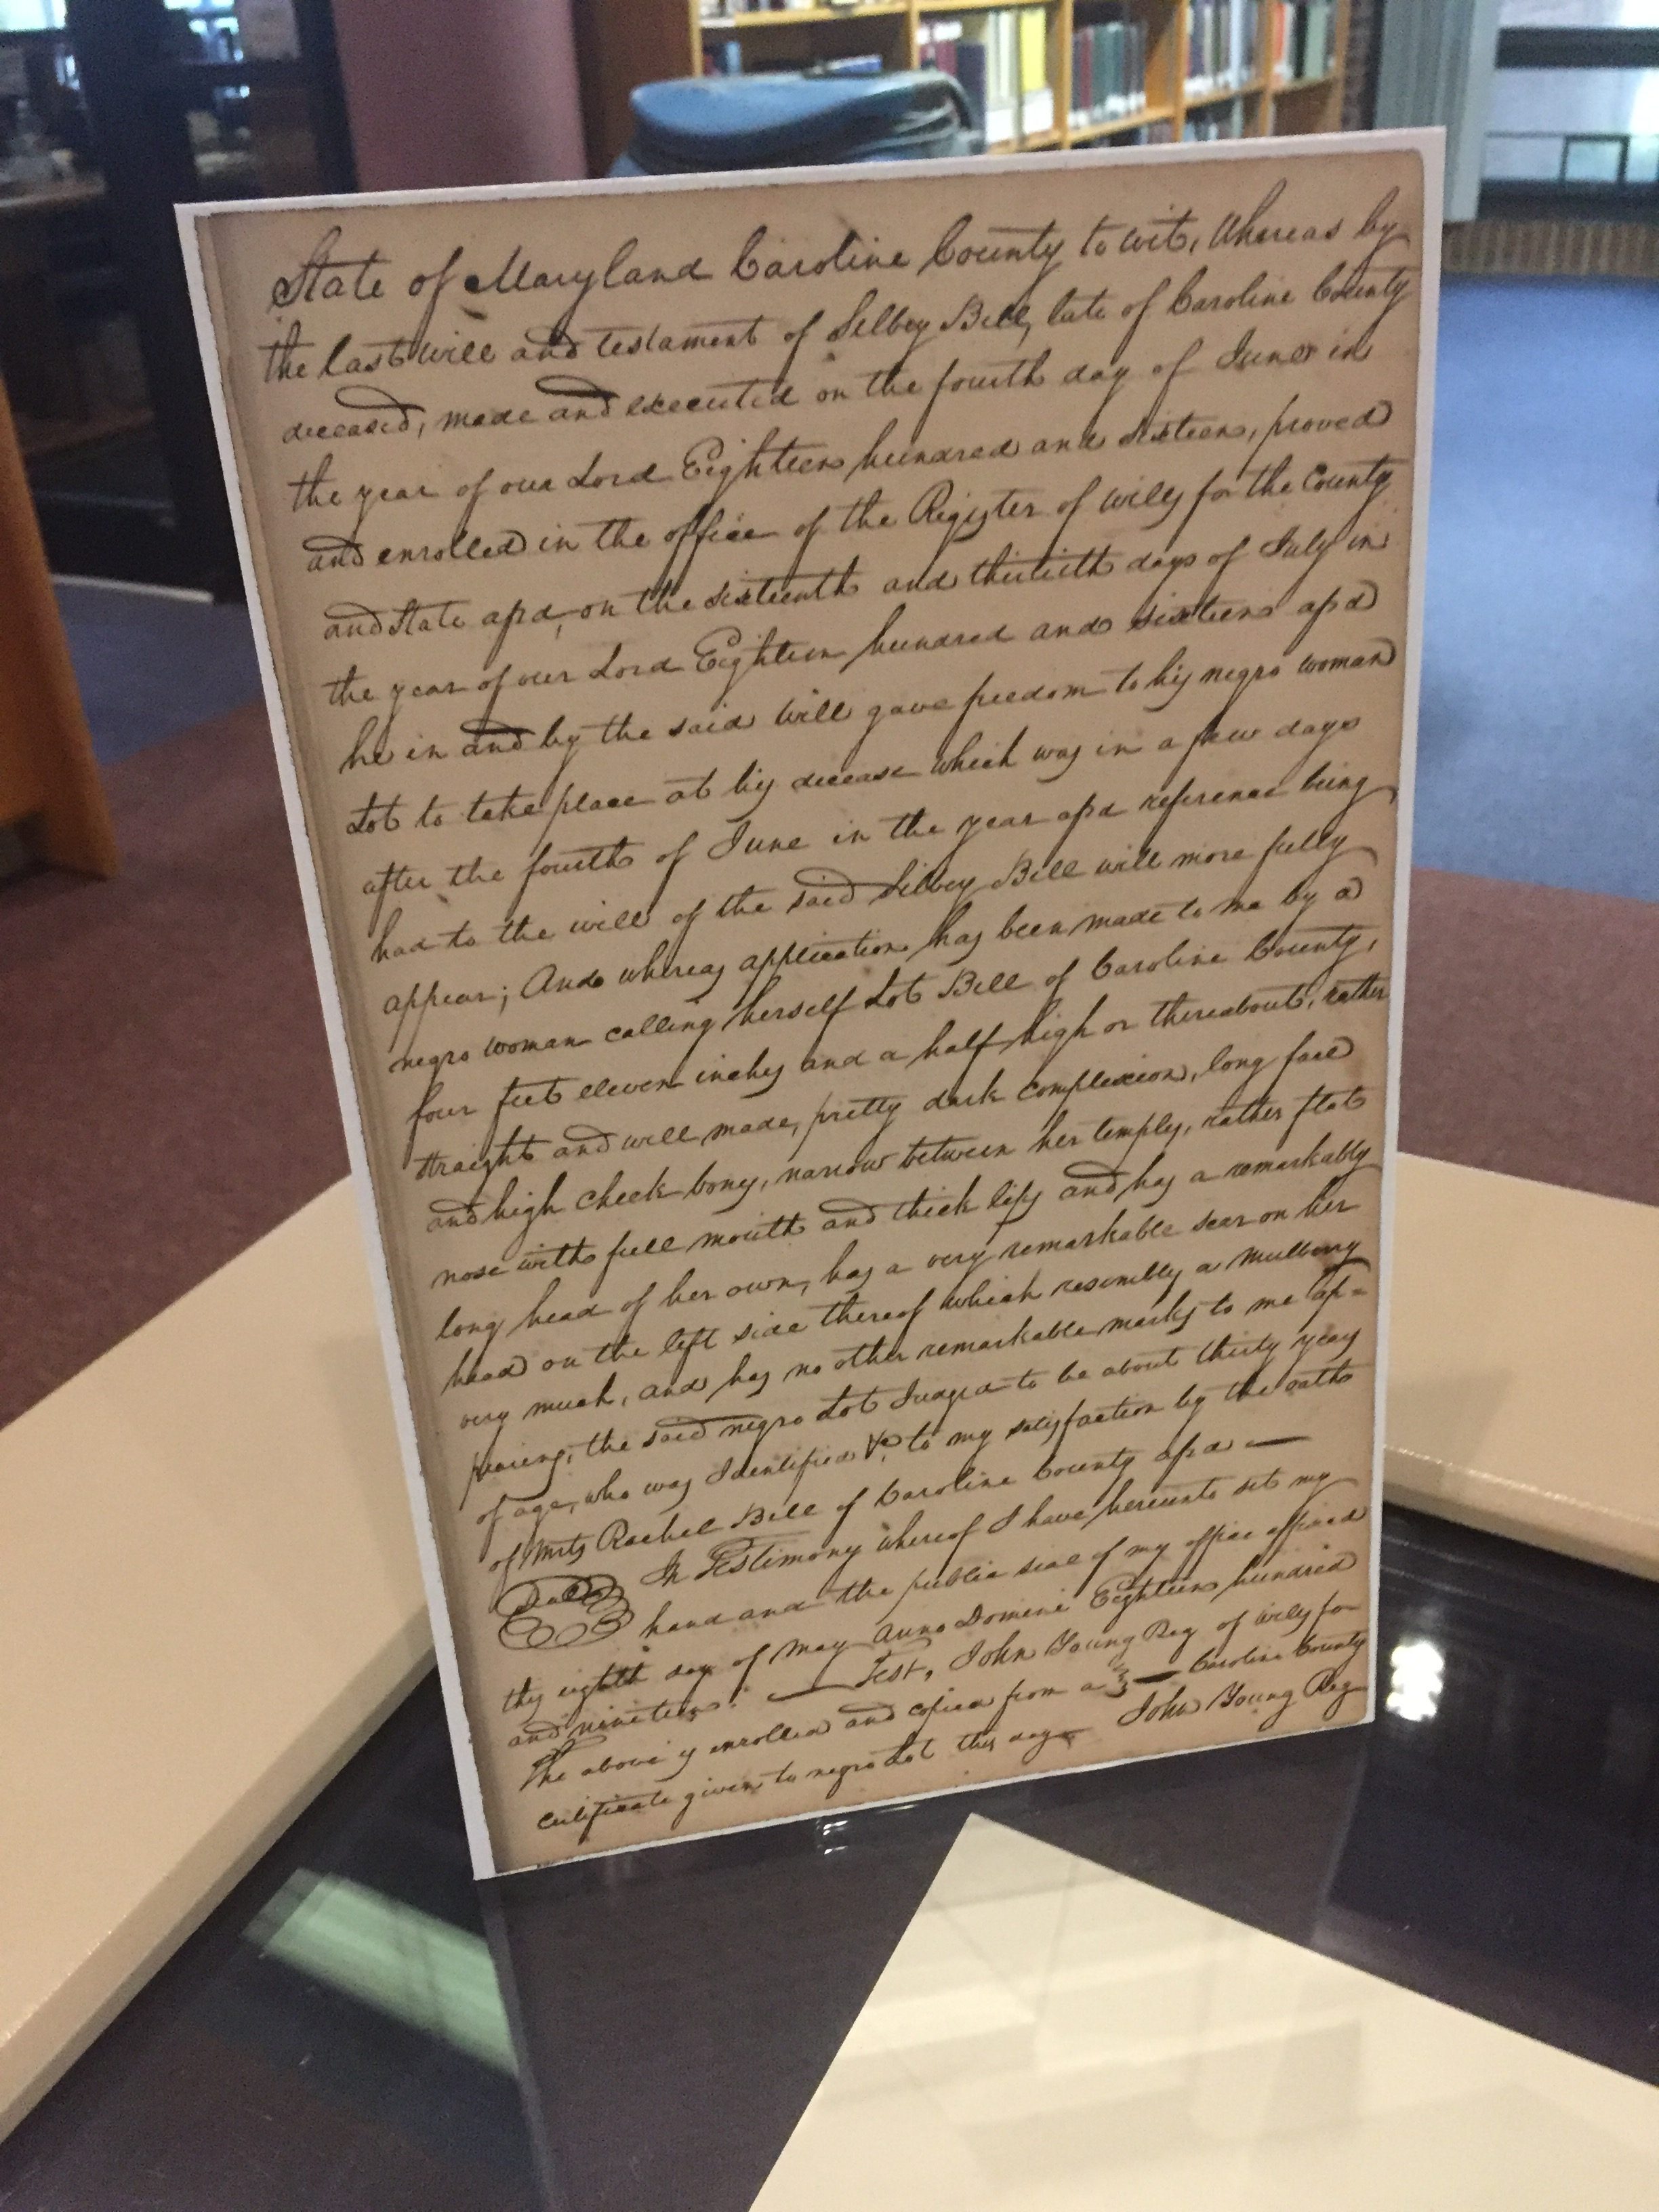 State of Maryland Caroline County to wit, Whereas by
the last will and testament of Selbey Bell, late of Caroline County
deceased, made and executed on the fourth day of June in
the year of our Lord Eighteen hundred and sixteen, proved
and enrolled in the office of the Register of wills for the County
and State afsd, on the sixteenth and thirtieth days of July in
the year of our Lord Eighteen hundred and sixteen afsd
he in and by the said will gave freedom to his negro woman
Lot to take place at his decease which was in a few days
after the fourth of June in the year afsd reference being
had to the will of the said Selbey Bell will more fully
appear; And whereas application has been made to me by a
negro woman calling herself Lot Bell of Caroline County,
four feet eleven inches and a half high or thereabout, rather
straight and well made, pretty dark complexion, long face
and high cheek bones, narrow between her temples, rather flat
nose with full mouth and thick lips and has a remarkably
long head of her own, has a very remarkable scar on her
head on the left side thereof which resembles a mulberry
very much, and has no other remarkable marks to me ap=
pearing, the said negro Lot Judged to be about thirty years
of age, who was Identified &c to my satisfaction by the oath
of Mrs Rachel Bell of Caroline County afsd —
In Testimony whereof I have hereunto set my
hand and the public seal of my office affixed
this eighth day of May Anno Domini Eighteen hundred
and nineteen. — Test, John Young Reg of wills for
The above is enrolled and copied from a — Caroline County
certificate given to negro Lot this day — John Young Reg